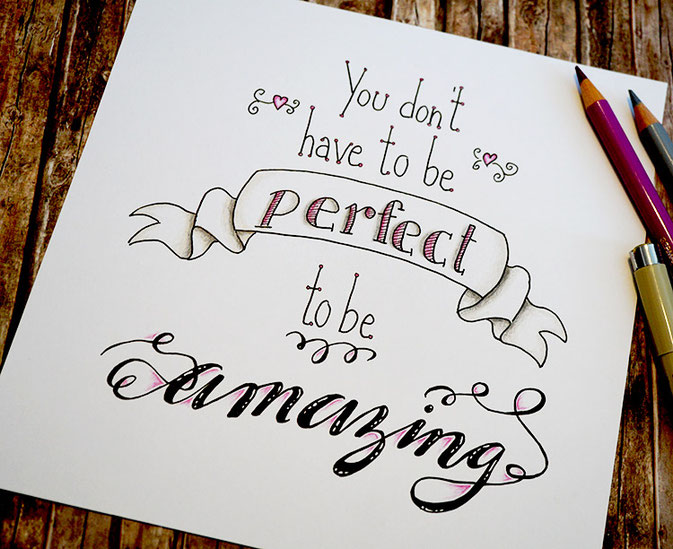 You don't
have to be
perfect
to be
amazing